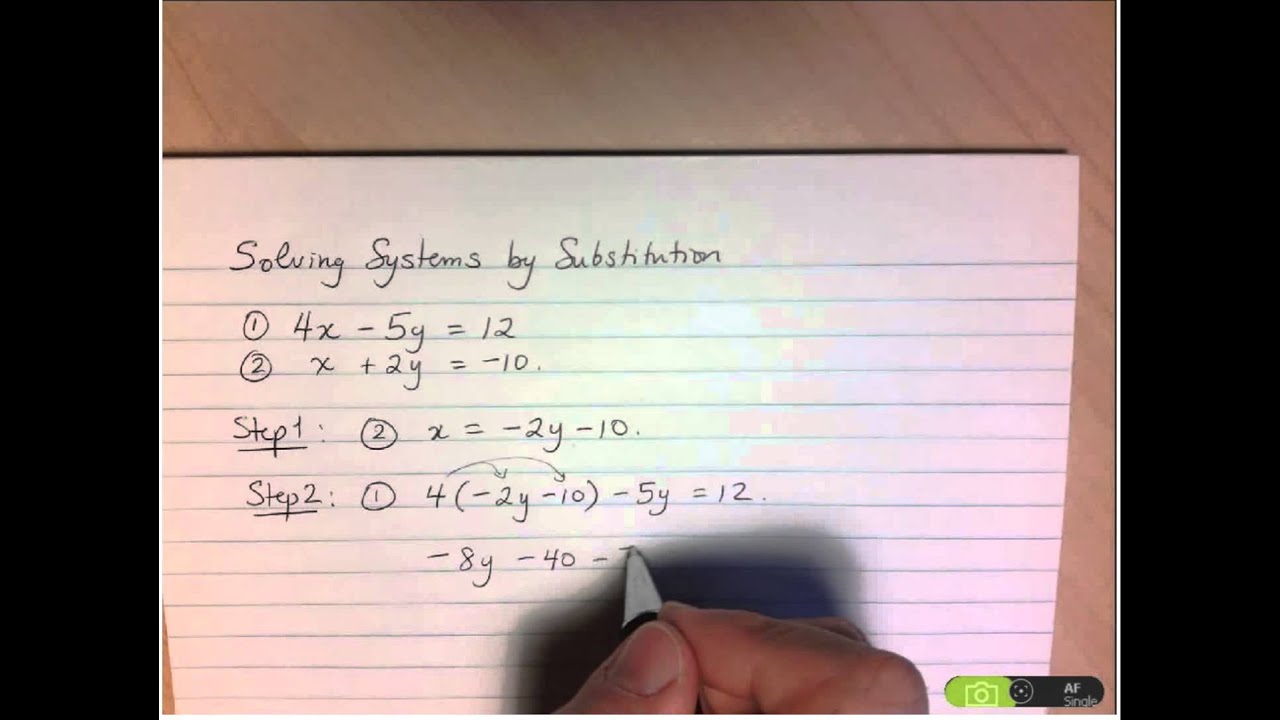 Solving Systems by Substitution
① 4x - 5y = 12
② x + 2y = -10.
Step1: ② x = -2y - 10.
Step2: ① 4(-2y - 10) - 5y = 12.
-8y - 40 -
AF
Single